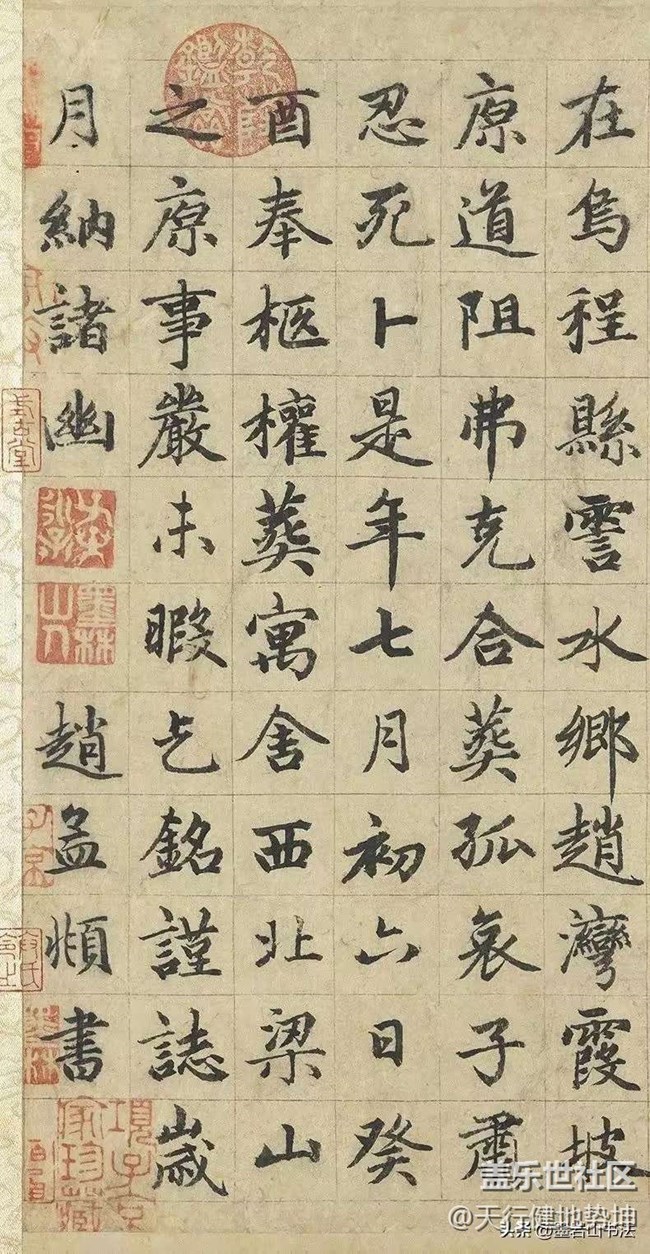 在烏程縣霅水鄉趙灣霞坡
原道阻弗克合葬孤哀子肅
忍死卜是年七月初六日癸
酉奉柩權葬寓舍西北梁山
之原事嚴未暇乞銘謹誌歲
月納諸幽 趙孟頫書
乾隆鑑賞
墨林山人
項子京家珍藏
盖乐世社区
@天行健地势坤